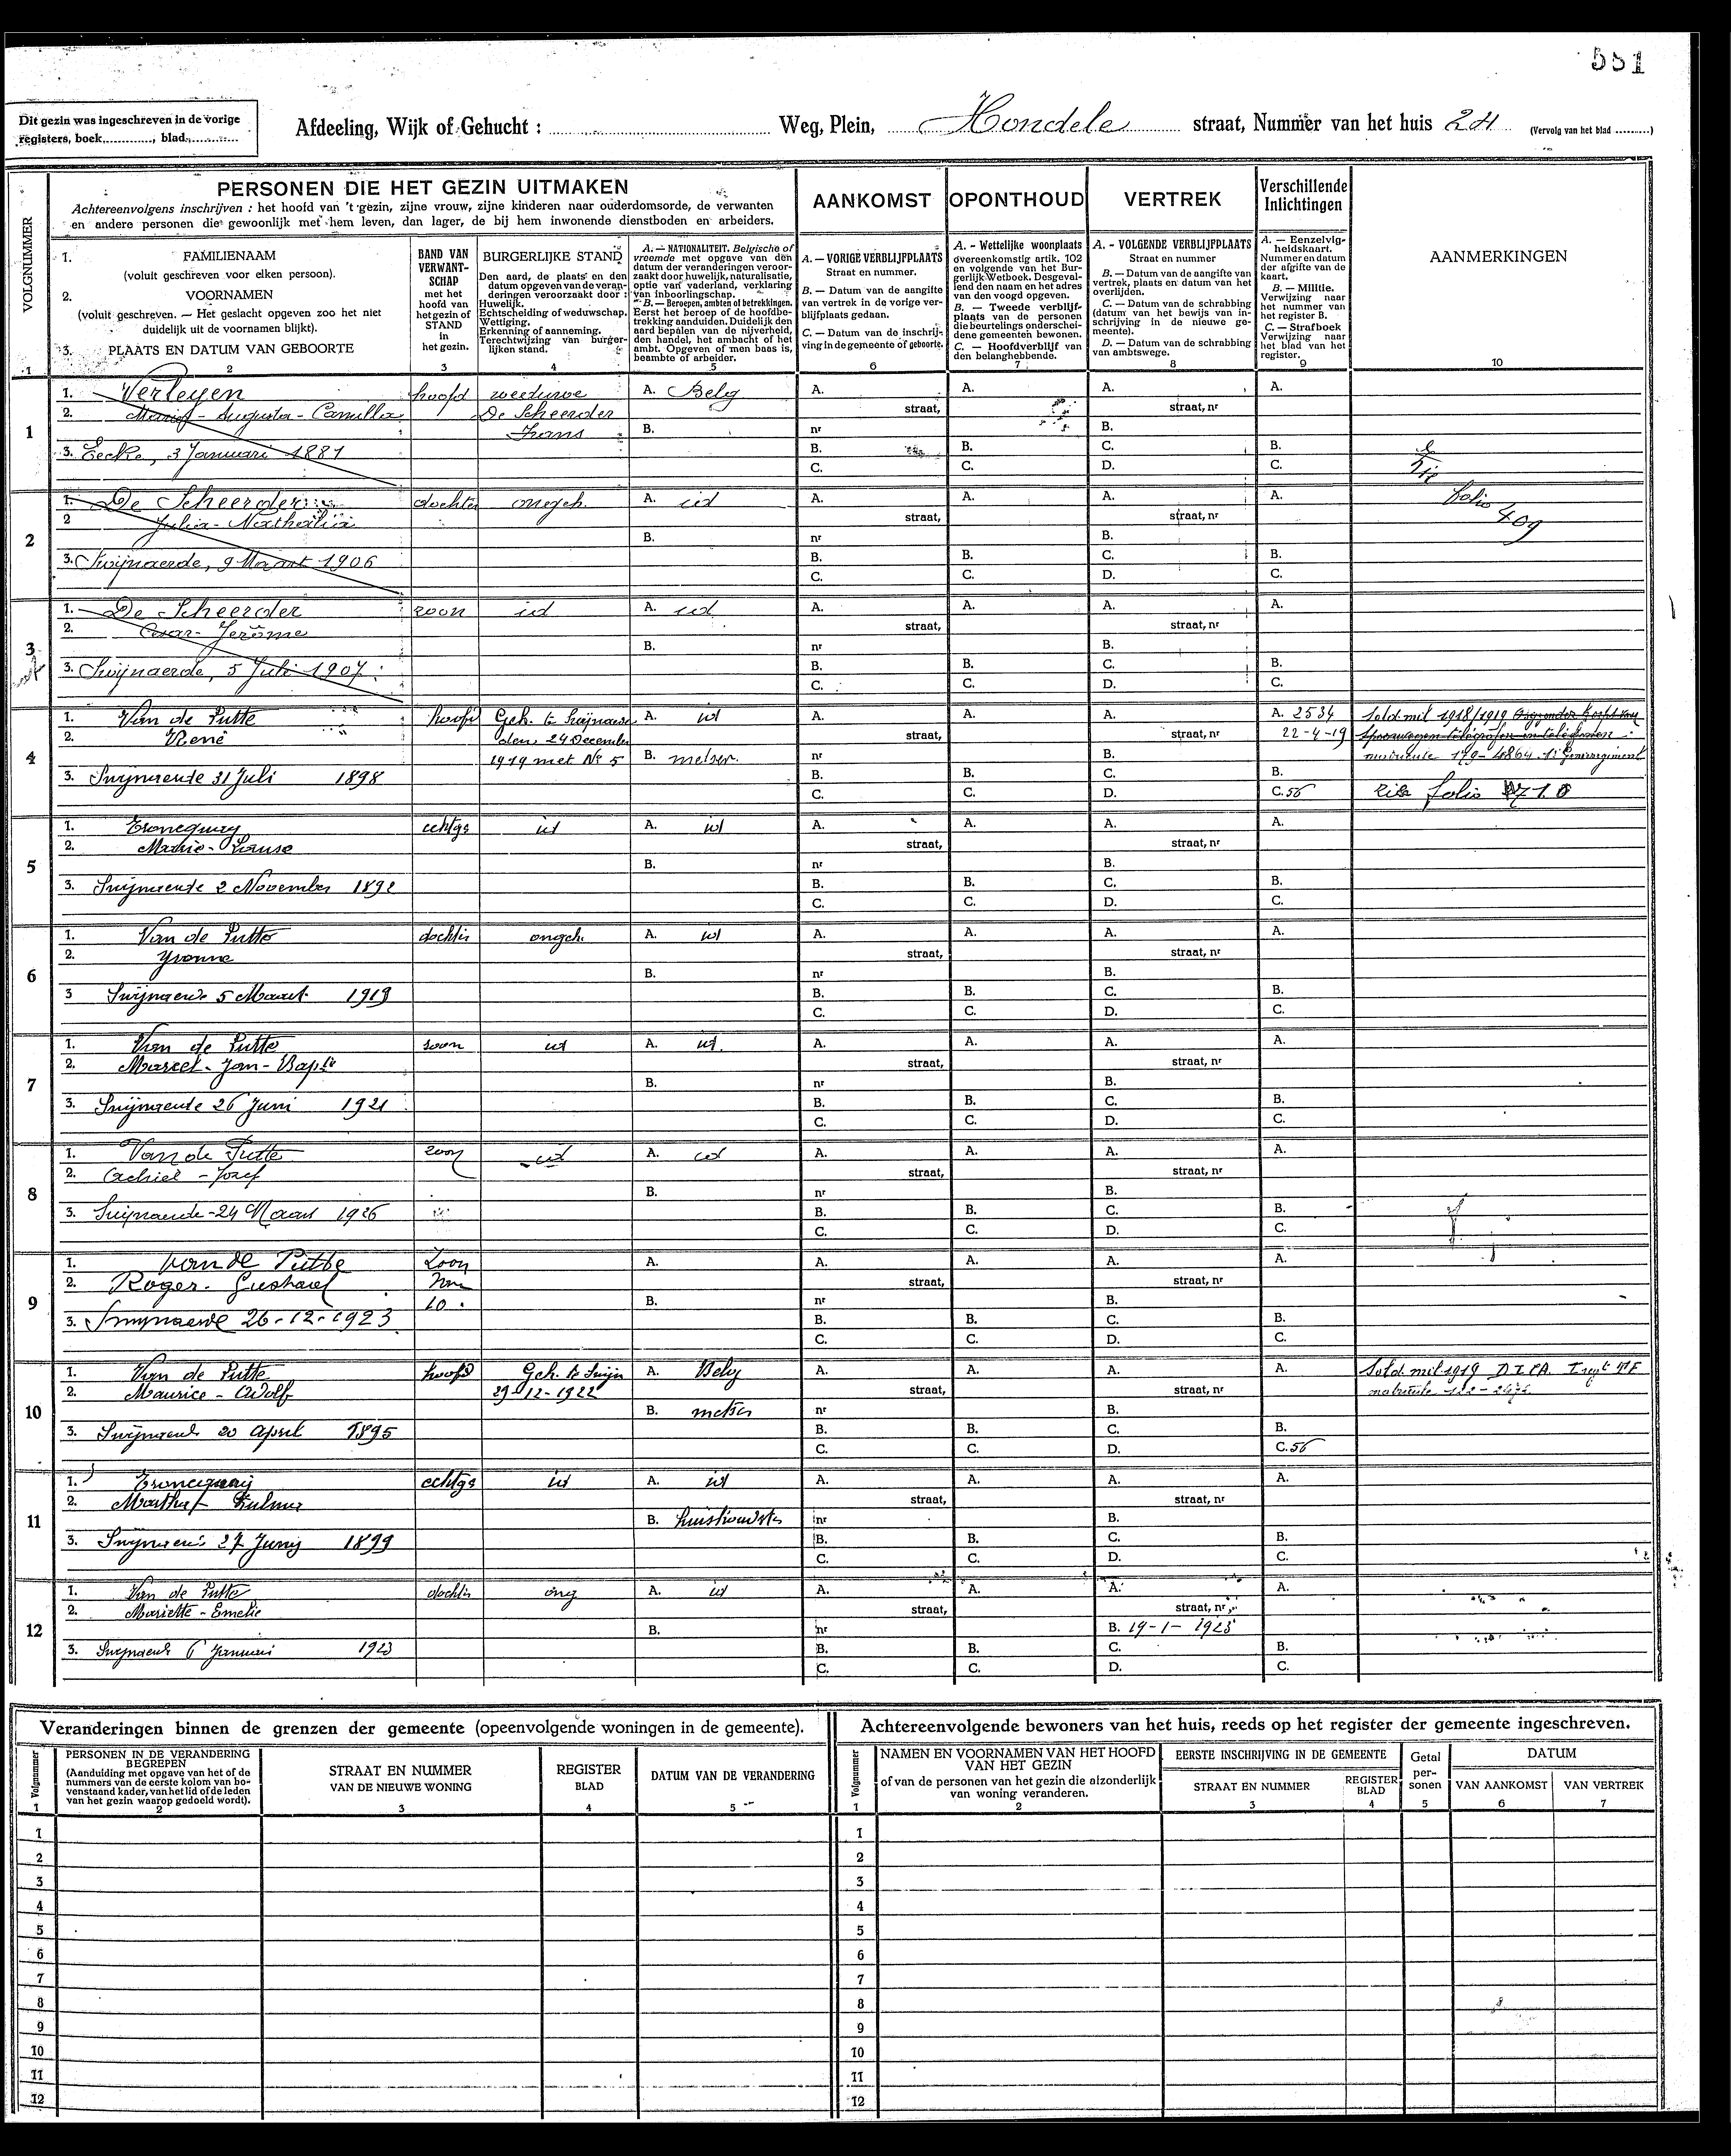 551
Dit gezin was ingeschreven in de vorige
registers, boek............, blad..............
Afdeeling, Wijk of Gehucht : ............ Weg, Plein, Hondele straat, Nummer van het huis 24 (Vervolg van het blad ..........)
VOLGNUMMER
PERSONEN DIE HET GEZIN UITMAKEN
Achtereenvolgens inschrijven : het hoofd van 't gezin, zijne vrouw, zijne kinderen naar ouderdomsorde, de verwanten
en andere personen die gewoonlijk met hem leven, dan lager, de bij hem inwonende dienstboden en arbeiders.
AANKOMST
OPONTHOUD
VERTREK
Verschillende
Inlichtingen
AANMERKINGEN
1. FAMILIENAAM
(voluit geschreven voor elken persoon).
2. VOORNAMEN
(voluit geschreven. — Het geslacht opgeven zoo het niet
duidelijk uit de voornamen blijkt).
3. PLAATS EN DATUM VAN GEBOORTE
BAND VAN
VERWANT-
SCHAP
met het
hoofd van
het gezin of
STAND
in
het gezin.
BURGERLIJKE STAND
Den aard, de plaats en den
datum opgeven van de veran-
deringen veroorzaakt door :
Huwelijk.
Echtscheiding of weduwschap.
Wettiging.
Erkenning of aanneming.
Terechtwijzing van burger-
lijken stand.
A. — NATIONALITEIT. Belgische of
vreemde met opgave van den
datum der veranderingen veroor-
zaakt door huwelijk, naturalisatie,
optie van vaderland, verklaring
van inboorlingschap.
B. — Beroepen, ambten of betrekkingen.
Eerst het beroep of de hoofdbe-
trekking aanduiden. Duidelijk den
aard bepalen van de nijverheid,
den handel, het ambacht of het
ambt. Opgeven of men baas is,
beambte of arbeider.
A. — VORIGE VERBLIJFPLAATS
Straat en nummer.
B. — Datum van de aangifte
van vertrek in de vorige ver-
blijfplaats gedaan.
C. — Datum van de inschrij-
ving in de gemeente of geboorte.
A. - Wettelijke woonplaats
overeenkomstig artik. 102
en volgende van het Bur-
gerlijk Wetboek. Desgeval-
lend den naam en het adres
van den voogd opgeven.
B. — Tweede verblijf-
plaats van de personen
die beurtelings onderschei-
dene gemeenten bewonen.
C. — Hoofdverblijf van
den belanghebbende.
A. - VOLGENDE VERBLIJFPLAATS
Straat en nummer
B. — Datum van de aangifte van
vertrek, plaats en datum van het
overlijden.
C. — Datum van de schrabbing
(datum van het bewijs van in-
schrijving in de nieuwe ge-
meente).
D. — Datum van de schrabbing
van ambtswege.
A. — Eenzelvig-
heidskaart.
Nummer en datum
der afgifte van de
kaart.
B. — Militie.
Verwijzing naar
het nummer van
het register B.
C. — Strafboek
Verwijzing naar
het blad van het
register.
1 2 3 4 5 6 7 8 9 10
1
1. Verleyen hoofd weduwe A. Belg A. A. A. A.
2. Maria - Augusta - Camilla De Scheerder straat, straat, nr
Frans B. nr B.
3. Eecke, 3 Januari 1881 B. B. C. B.
C. C. D. C.
2
1. De Scheerder dochter ongeh. A. id A. A. A. A. folio
2 Julia - Nathalia straat, straat, nr 409
B. nr B.
3. Swijnaerde, 9 Maart 1906 B. B. C. B.
C. C. D. C.
3
1. De Scheerder zoon id A. id A. A. A. A.
2. Cesar - Jerôme straat, straat, nr
B. nr B.
3. Swijnaerde, 5 Juli 1907. B. B. C. B.
C. C. D. C.
4
1. Van de Putte hoofd Geh. te Swijnaerde A. id A. A. A. A. 2534 Sold. mil 1918/1919
2. René den 24 December straat, straat, nr 22-4-19 Spoorwegen telegrafen en telefonen
1919 met No 5 B. metser. nr B. matricule 179 - 4864
3. Swijnaerde 31 Juli 1898 B. B. C. B.
C. C. D. C. 56 folio 710
5
1. Troncquay echtge id A. id A. A. A. A.
2. Marie - Louise straat, straat, nr
B. nr B.
3. Swijnaerde 2 November 1892 B. B. C. B.
C. C. D. C.
6
1. Van de Putte dochter ongeh. A. id A. A. A. A.
2. Yvonne straat, straat, nr
B. nr B.
3 Swijnaerde 5 Maart 1919 B. B. C. B.
C. C. D. C.
7
1. Van de Putte zoon id A. id. A. A. A. A.
2. Marcel - Jan - Bapte straat, straat, nr
B. nr B.
3. Swijnaerde 26 Juni 1921 B. B. C. B.
C. C. D. C.
8
1. Van de Putte zoon id A. id A. A. A. A.
2. Achiel - Jozef straat, straat, nr
B. nr B.
3. Swijnaerde - 24 Maart 1926 B. B. C. B.
C. C. D. C.
9
1. van de Putte Zoon A. A. A. A. A.
2. Roger - Gustaaf straat, straat, nr
10. B. nr B.
3. Swijnaerde 26-12-1923 B. B. C. B.
C. C. D. C.
10
1. Van de Putte hoofd Geh. te Swijn A. Belg A. A. A. A. Sold. mil 1919
2. Maurice - Adolf 29-12-1922 straat, straat, nr matricule
B. metser nr B.
3. Swijnaerde 20 april 1895 B. B. C. B.
C. C. D. C. 56
11
1. Troncquaij echtge id A. id A. A. A. A.
2. Martha - Zulma straat, straat, nr
B. huishoudster nr B.
3. Swijnaerde 27 Junij 1899 B. B. C. B.
C. C. D. C.
12
1. Van de Putte dochter ong A. id A. A. A. A.
2. Mariette - Emelie straat, straat, nr
B. nr B. 19-1-1923
3. Swijnaerde 6 Januari 1923 B. B. C. B.
C. C. D. C.
Veranderingen binnen de grenzen der gemeente (opeenvolgende woningen in de gemeente).
Volgnummer
PERSONEN IN DE VERANDERING
BEGREPEN
(Aanduiding met opgave van het of de
nummers van de eerste kolom van bo-
venstaand kader, van het lid of de leden
van het gezin waarop gedoeld wordt).
STRAAT EN NUMMER
VAN DE NIEUWE WONING
REGISTER
BLAD
DATUM VAN DE VERANDERING
1 2 3 4 5
1
2
3
4
5
6
7
8
9
10
11
12
Achtereenvolgende bewoners van het huis, reeds op het register der gemeente ingeschreven.
Volgnummer
NAMEN EN VOORNAMEN VAN HET HOOFD
VAN HET GEZIN
of van de personen van het gezin die afzonderlijk
van woning veranderen.
EERSTE INSCHRIJVING IN DE GEMEENTE
STRAAT EN NUMMER
REGISTER
BLAD
Getal
per-
sonen
DATUM
VAN AANKOMST
VAN VERTREK
1 2 3 4 5 6 7
1
2
3
4
5
6
7
8
9
10
11
12